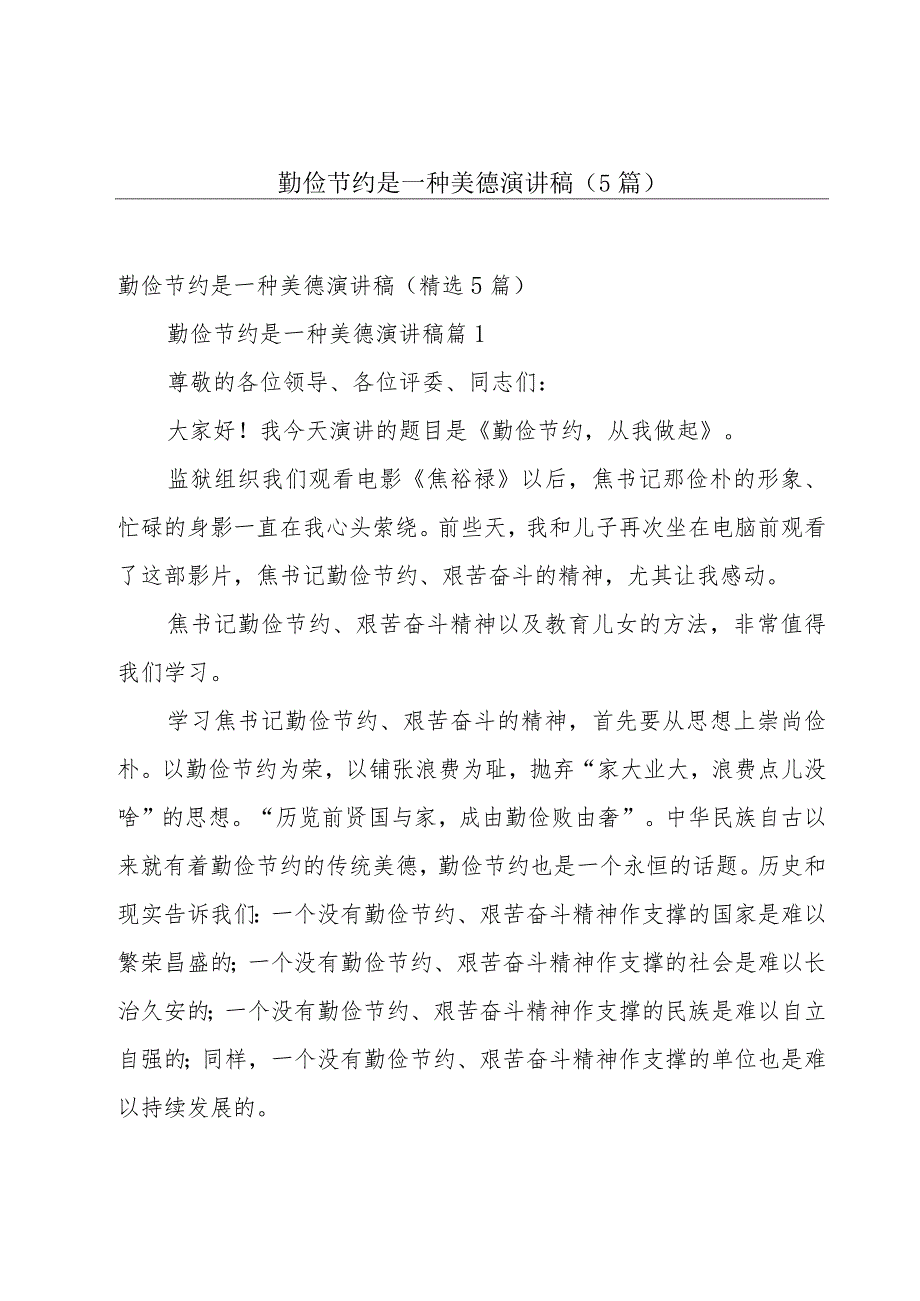 勤俭节约是一种美德演讲稿（5 篇）
勤俭节约是一种美德演讲稿（精选 5 篇）
勤俭节约是一种美德演讲稿篇 1
尊敬的各位领导、各位评委、同志们：
大家好！我今天演讲的题目是《勤俭节约，从我做起》。
监狱组织我们观看电影《焦裕禄》以后，焦书记那俭朴的形象、
忙碌的身影一直在我心头萦绕。前些天，我和儿子再次坐在电脑前观看
了这部影片，焦书记勤俭节约、艰苦奋斗的精神，尤其让我感动。
焦书记勤俭节约、艰苦奋斗精神以及教育儿女的方法，非常值得
我们学习。
学习焦书记勤俭节约、艰苦奋斗的精神，首先要从思想上崇尚俭
朴。以勤俭节约为荣，以铺张浪费为耻，抛弃“家大业大，浪费点儿没
啥”的思想。“历览前贤国与家，成由勤俭败由奢”。中华民族自古以
来就有着勤俭节约的传统美德，勤俭节约也是一个永恒的话题。历史和
现实告诉我们：一个没有勤俭节约、艰苦奋斗精神作支撑的国家是难以
繁荣昌盛的；一个没有勤俭节约、艰苦奋斗精神作支撑的社会是难以长
治久安的；一个没有勤俭节约、艰苦奋斗精神作支撑的民族是难以自立
自强的；同样，一个没有勤俭节约、艰苦奋斗精神作支撑的单位也是难
以持续发展的。